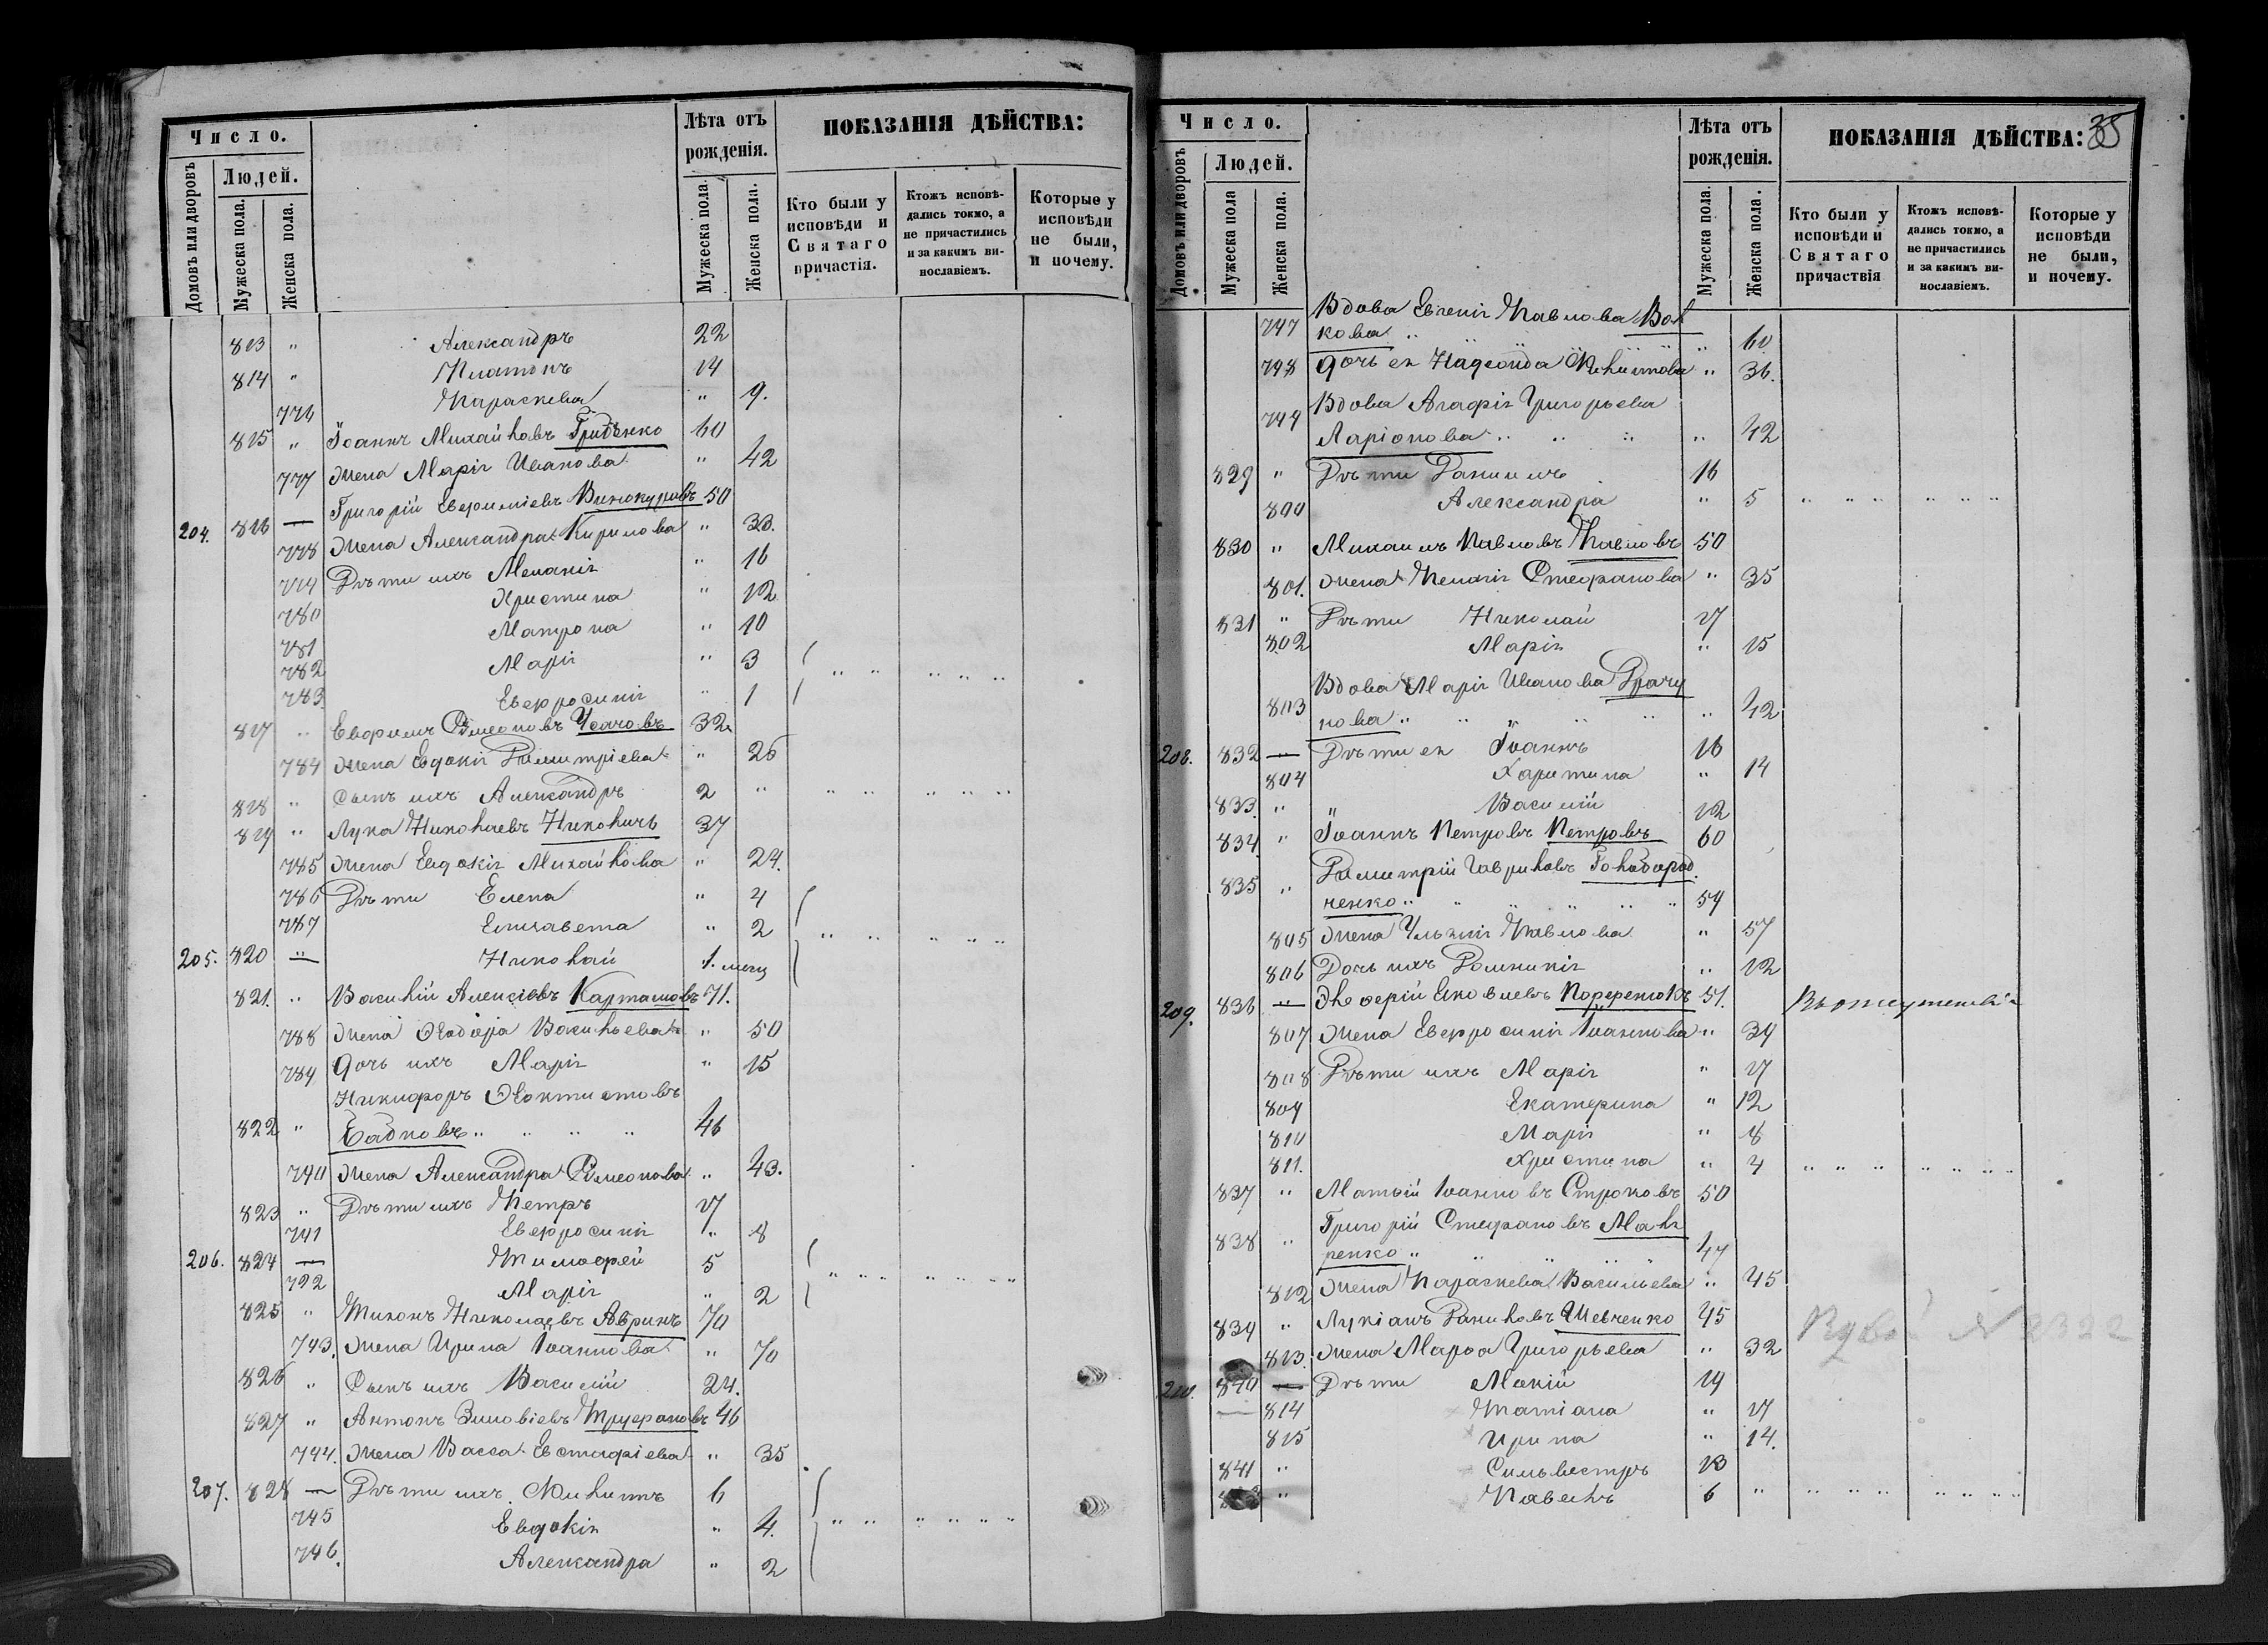 Число.
Людей.
Домовъ или дворовъ
Мужеска пола.
Женска пола.
Лѣта отъ
рожденія.
Мужеска пола.
Женска пола.
ПОКАЗАНІЯ ДѢЙСТВА:
Кто были у
исповѣди и
Святаго
причастія.
Ктожъ исповѣ-
дались токмо, а
не причастились
и за какимъ ви-
нославіемъ.
Которые у
исповѣди
не были,
и почему.
813 " Александръ 22
814 " Платонъ 14
776 Параскева " 9.
815 " Іоаннъ Михайловъ Гриденко 60
777 Жена Марія Иванова " 42
204. 816 — Григорій Евфиміевъ Винокуровъ 50
778 Жена Александра Кирилова " 38.
779 Дѣти ихъ Меланія " 16
780 Христина " 12
781 Матрона " 10
782 Марія " 3
783 Евфросинія " 1
817 " Ефримъ Симеоновъ Усачовъ 32
784 Жена Евдокія Димитріева " 26
818 " Сынъ ихъ Александръ 2 "
819 " Лука Николаевъ 37
785 Жена Евдокія Михайлова " 24.
786 Дѣти Елена " 4
787 Елисавета " 2
205. 820 — Николай 1. мсц
821. " Василій Алексіевъ Карташовъ 71.
788 Жена Ѳеодора Васильева " 50
789 Дочь ихъ Марія " 15
Никифоръ Ѳеоктистовъ
822 " 46
790 Жена Александра Симеонова " 43.
823 " Дѣти ихъ Петръ 17
791 Евфросинія " 8
206. 824 — Тимофей 5
792 Марія " 2
825 " Тихонъ Николаевъ Авринъ 70
793. Жена Ирина Іоаннова " 70
826 " Сынъ ихъ Василій 24.
827 " Антонъ Зиновіевъ Труфановъ 46
794. Жена Васса Евстафіева " 35
207. 828 — Дѣти ихъ 6
795 Евдокія " 4.
796. Александра " 2
35
Число.
Людей.
Домовъ или дворовъ
Мужеска пола
Женска пола.
Лѣта отъ
рожденія.
Мужеска пола.
Женска пола.
ПОКАЗАНІЯ ДѢЙСТВА:
Кто были у
исповѣди и
Святаго
причастія
Ктожъ исповѣ-
дались токмо, а
не причастились
и за какимъ ви-
нославіемъ.
Которые у
исповѣди
не были,
и почему.
Вдова Евгенія Павлова Вол
797 кова " 60
798 Дочь ея " 36.
Вдова Агафія Григорьева
799 Ларіонова " 42
829 " Дѣти Даниилъ 16
800 Александра " 5
830 " Михаилъ Павловъ Павловъ 50
801. Жена Пелагія Стефанова " 35
831 " Дѣти Николай 17
802 Марія " 15
Вдова Марія Иванова Драгу
803 нова " 42
208. 832 — Дѣти ея Іоаннъ 16
804 Харитина " 14
833. " Василій 12
834. " Іоаннъ Петровъ Петровъ 60
Димитрій Гавриловъ Голобород
835 " ченко 59
805 Жена Ульянія Павлова " 57
806 Дочь ихъ Домникія " 12
209. 836 — Яковлевъ 51.
807 Жена Евфросинія Іоаннова " 39
808 Дѣти ихъ Марія " 17
809 Екатерина " 12
810 Марія " 8
811. Христина " 4
837 " Матѳій Іоанновъ Строковъ 50
Григорій Стефановъ Мак
838 " ренко 47
812 Жена Параскева Васильева " 45
839 " Лукіанъ Даниловъ Шевченко 45
813. Жена Марѳа Григорьева " 32
210. 840 — Дѣти Мокій 19
814 Татіана " 17
815 Ирина " 14.
841 " Сильвестръ 13
" Павелъ 6 "